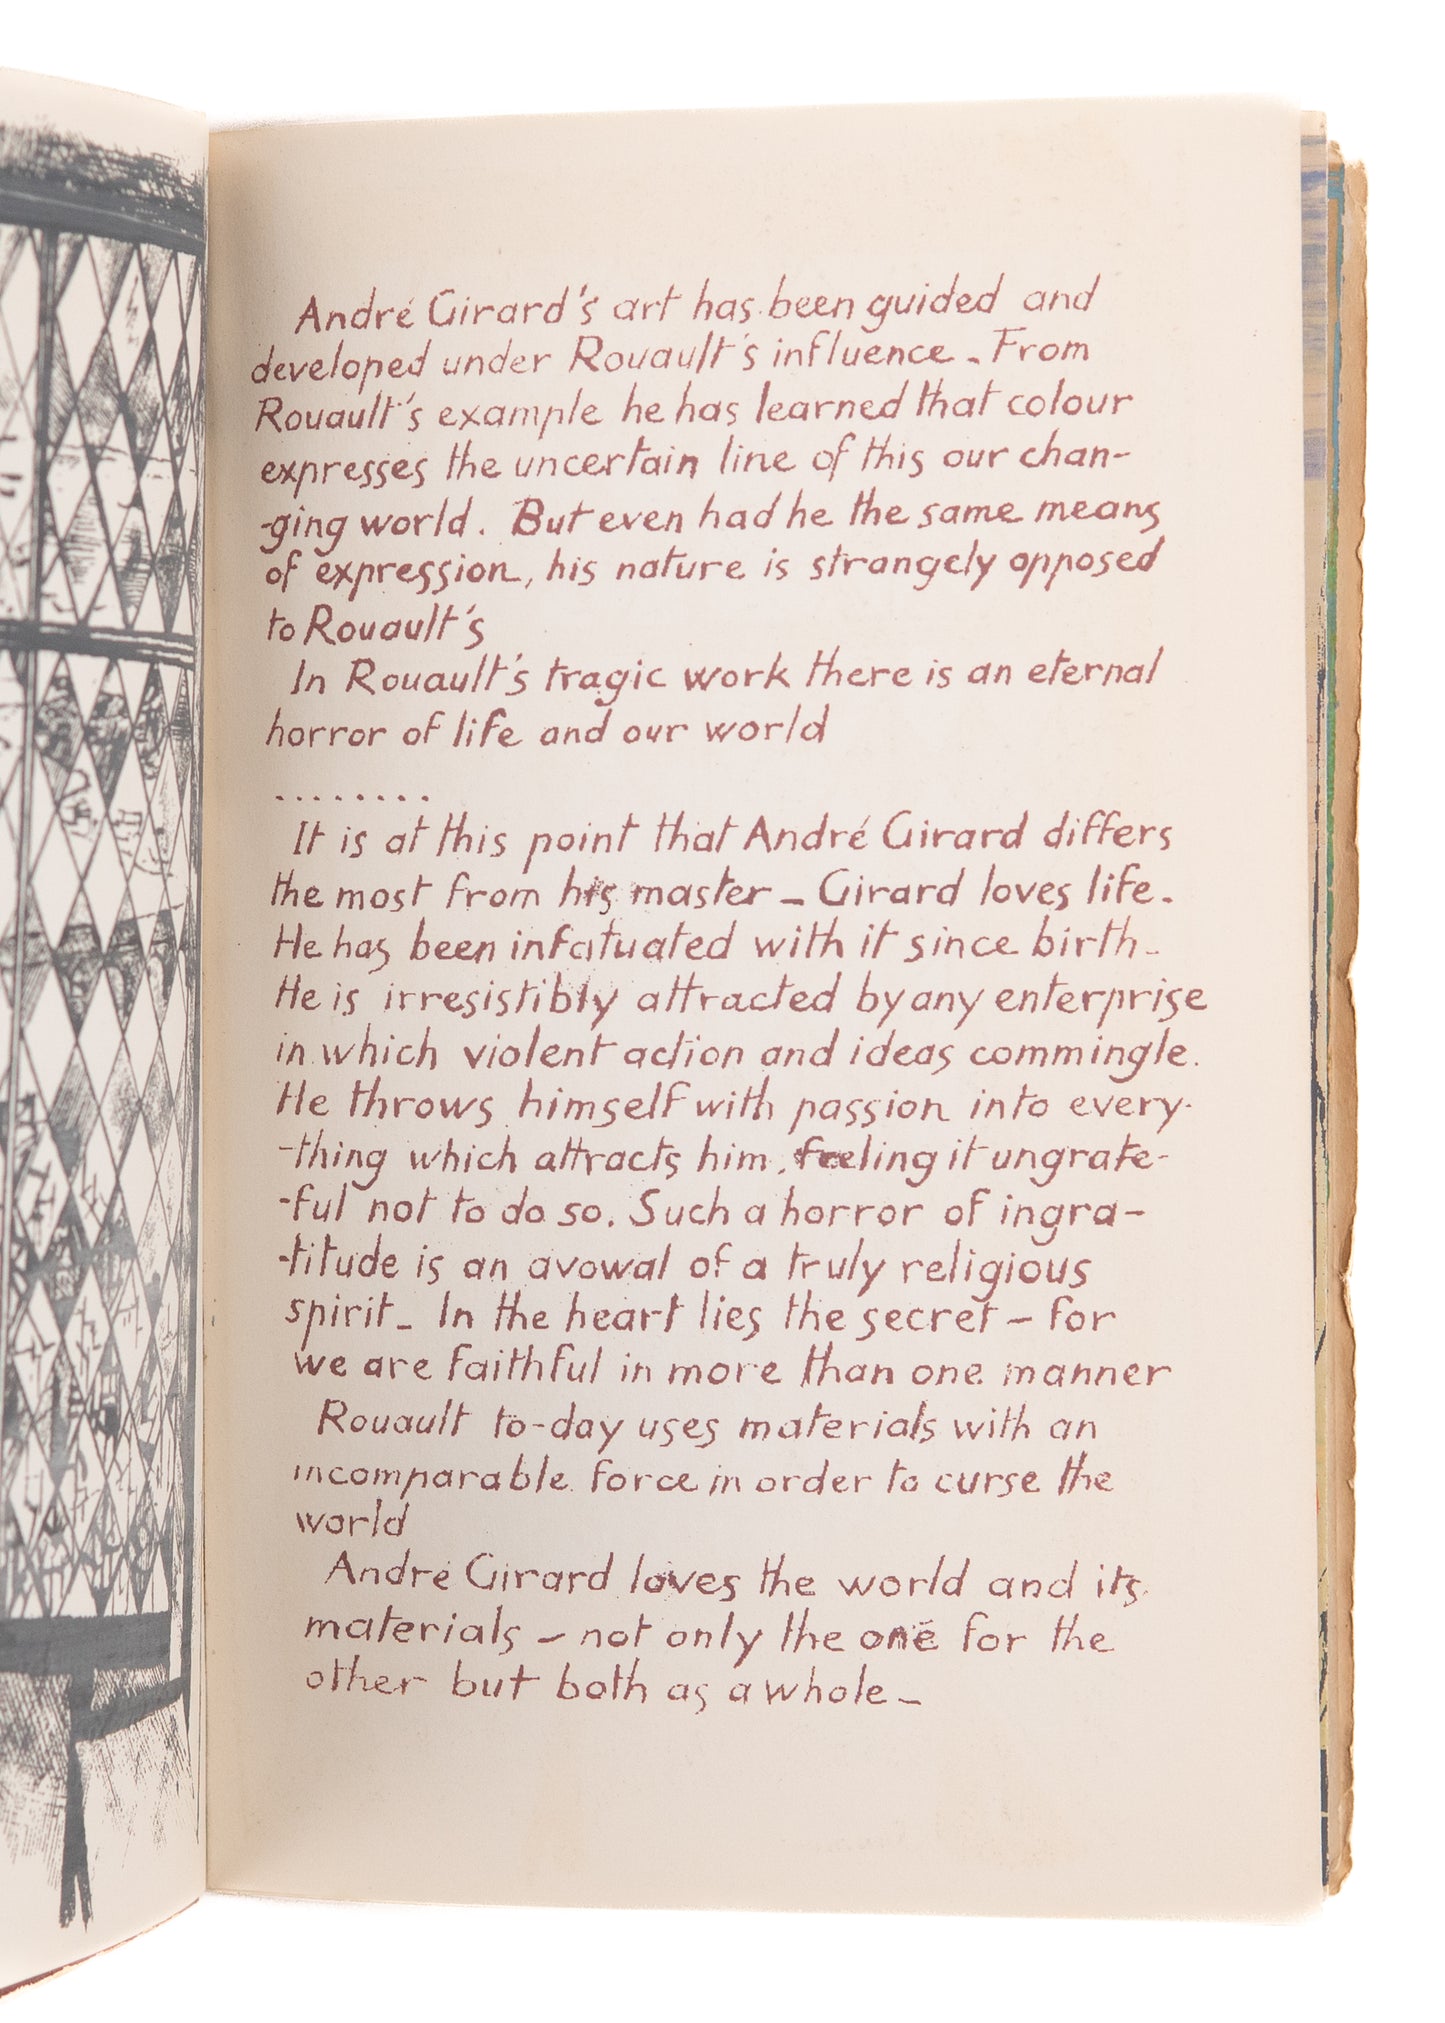 André Girard's art has been guided and
developed under Rouault's influence_From
Rouault's example he has learned that colour
expresses the uncertain line of this our chan-
-ging world. But even had he the same means
of expression, his nature is strangely opposed
to Rouault's
In Rouault's tragic work there is an eternal
horror of life and our world
........
It is at this point that André Girard differs
the most from his master_Girard loves life.
He has been infatuated with it since birth_
He is irresistibly attracted by any enterprise
in which violent action and ideas commingle.
He throws himself with passion into every-
-thing which attracts him, feeling it ungrate-
-ful not to do so. Such a horror of ingra-
-titude is an avowal of a truly religious
spirit_ In the heart lies the secret – for
we are faithful in more than one manner
Rouault to-day uses materials with an
incomparable force in order to curse the
world
André Girard loves the world and its
materials – not only the one for the
other but both as a whole_